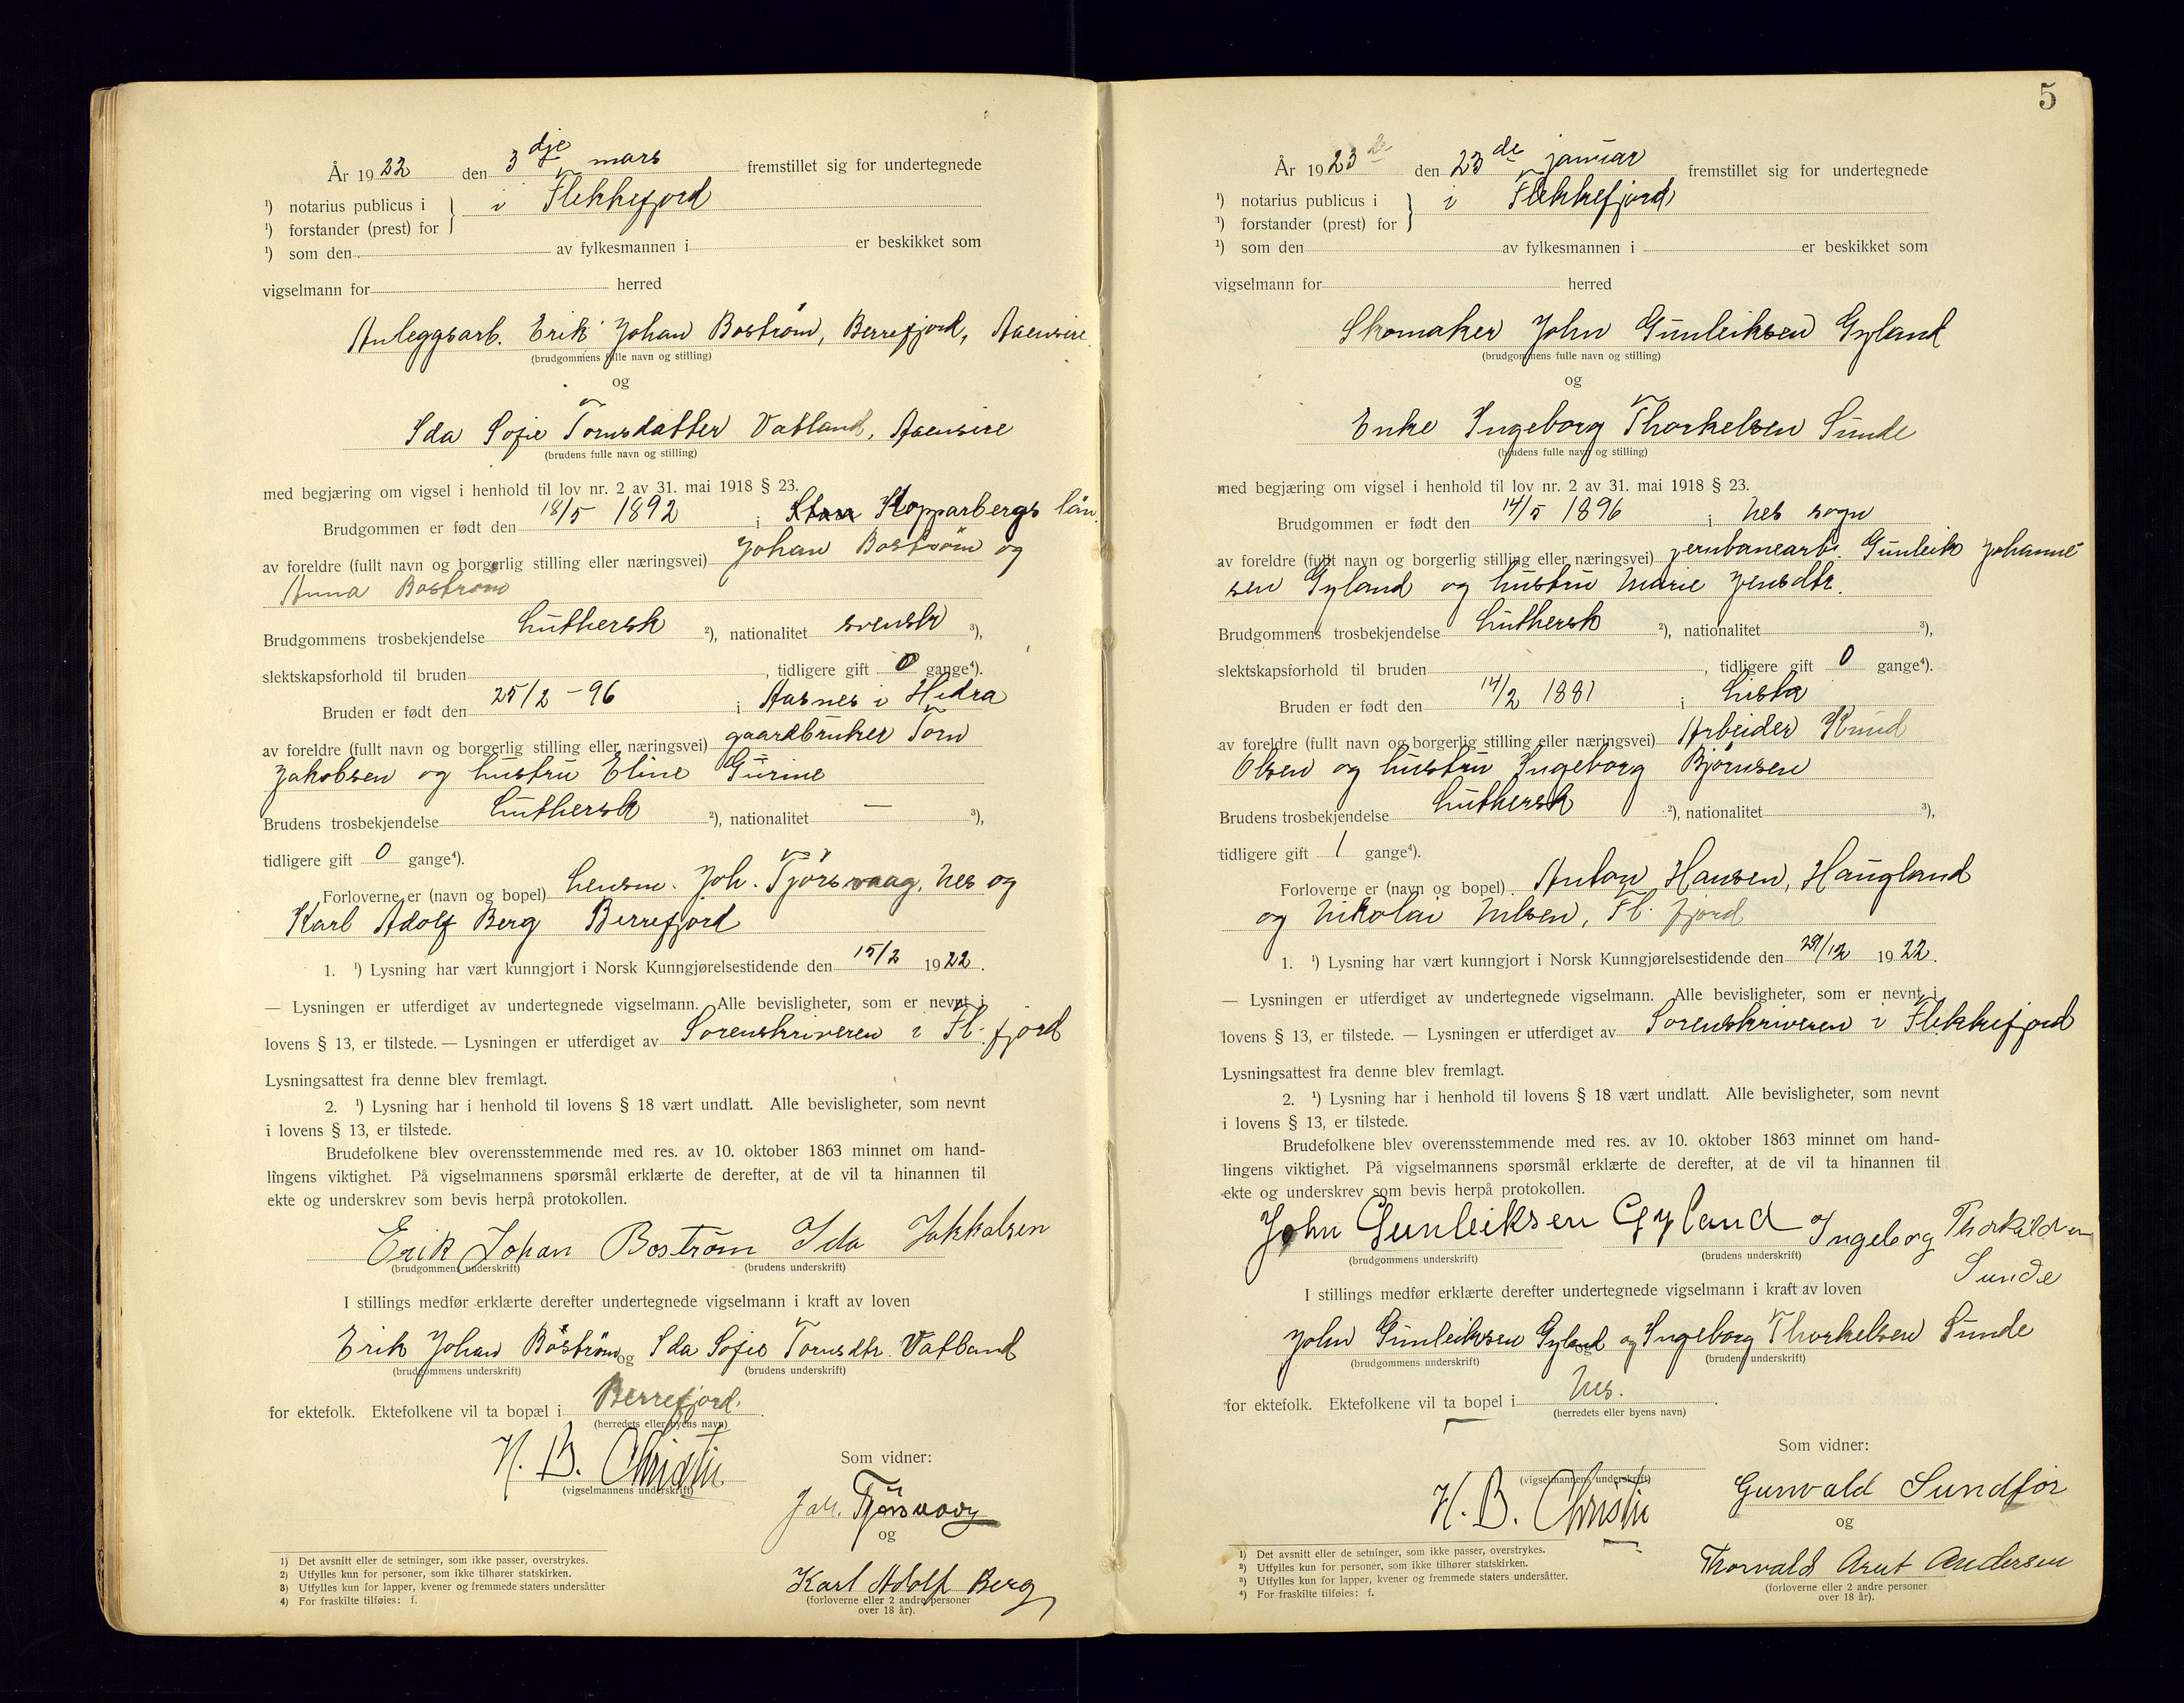 År 1922 den 3dje mars fremstillet sig for undertegnede
¹) notarius publicus i } i Flekkefjord
¹) forstander (prest) for
¹) som den av fylkesmannen i er beskikket som
vigselmann for herred
Anleggsarb. Erik Johan Boström, Berrefjord, Aaensire
(brudgommens fulle navn og stilling)
og
Ida Sofie Tomsdatter Vatland, Aaensire
(brudens fulle navn og stilling)
med begjæring om vigsel i henhold til lov nr. 2 av 31. mai 1918 § 23.
Brudgommen er født den 18/5 1892 i Kopparbergs län
av foreldre (fullt navn og borgerlig stilling eller næringsvei) Johan Boström og
Anna Boström
Brudgommens trosbekjendelse luthersk ²), nationalitet svensk ³),
slektskapsforhold til bruden , tidligere gift 0 gange⁴).
Bruden er født den 25/2 – 96 i Aasnes i Hidra
av foreldre (fullt navn og borgerlig stilling eller næringsvei) gaardbruker Tom
Jakobsen og hustru Eline Gurine
Brudens trosbekjendelse luthersk ²), nationalitet — ³),
tidligere gift 0 gange⁴).
Forloverne er (navn og bopel) lensm. Joh. Tjörsvaag, Nes og
Karl Adolf Berg Berrefjord
1. ¹) Lysning har vært kunngjort i Norsk Kunngjørelsestidende den 15/2 1922.
— Lysningen er utferdiget av undertegnede vigselmann. Alle bevisligheter, som er nevnt i
lovens § 13, er tilstede. — Lysningen er utferdiget av Sorenskriveren i Fl. fjord
Lysningsattest fra denne blev fremlagt.
2. ¹) Lysning har i henhold til lovens § 18 vært undlatt. Alle bevisligheter, som nevnt
i lovens § 13, er tilstede.
Brudefolkene blev overensstemmende med res. av 10. oktober 1863 minnet om hand-
lingens viktighet. På vigselmannens spørsmål erklærte de derefter, at de vil ta hinannen til
ekte og underskrev som bevis herpå protokollen.
Erik Johan Boström Ida Jakkobsen
(brudgommens underskrift) (brudens underskrift)
I stillings medfør erklærte derefter undertegnede vigselmann i kraft av loven
Erik Johan Boström og Ida Sofie Tomsdtr. Vatland
(brudgommens underskrift) (brudens underskrift)
for ektefolk. Ektefolkene vil ta bopæl i Berrefjord.
(herredets eller byens navn)
H. B. Christie
(vigselmannens underskrift)
Som vidner:
Joh. Tjörsvaag
og
Karl Adolf Berg
(forloverne eller 2 andre personer
over 18 år).
1) Det avsnitt eller de setninger, som ikke passer, overstrykes.
2) Utfylles kun for personer, som ikke tilhører statskirken.
3) Utfylles kun for lapper, kvener og fremmede staters undersåtter
4) For fraskilte tilføies: f.
5
År 1923de den 23de januar fremstillet sig for undertegnede
¹) notarius publicus i } i Flekkefjord
¹) forstander (prest) for
¹) som den av fylkesmannen i er beskikket som
vigselmann for herred
Skomaker John Gunleiksen Gyland
(brudgommens fulle navn og stilling)
og
Enke Ingeborg Thorkelsen Sunde
(brudens fulle navn og stilling)
med begjæring om vigsel i henhold til lov nr. 2 av 31. mai 1918 § 23.
Brudgommen er født den 14/5 1896 i Nes sogn
av foreldre (fullt navn og borgerlig stilling eller næringsvei) jernbanearb. Gunleik Johanne
sen Gyland og hustru Marie Jensdtr.
Brudgommens trosbekjendelse luthersk ²), nationalitet ³),
slektskapsforhold til bruden , tidligere gift 0 gange⁴).
Bruden er født den 14/2 1881 i Lista
av foreldre (fullt navn og borgerlig stilling eller næringsvei) Arbeider Knud
Olsen og hustru Ingeborg Bjørnsen
Brudens trosbekjendelse luthersk ²), nationalitet ³),
tidligere gift 1 gange⁴).
Forloverne er (navn og bopel) Anton Hansen, Haugland
og Nikolai Nilsen, Fl. fjord
1. ¹) Lysning har vært kunngjort i Norsk Kunngjørelsestidende den 29/12 1922.
— Lysningen er utferdiget av undertegnede vigselmann. Alle bevisligheter, som er nevnt i
lovens § 13, er tilstede. — Lysningen er utferdiget av Sorenskriveren i Flekkefjord
Lysningsattest fra denne blev fremlagt.
2. ¹) Lysning har i henhold til lovens § 18 vært undlatt. Alle bevisligheter, som nevnt
i lovens § 13, er tilstede.
Brudefolkene blev overensstemmende med res. av 10. oktober 1863 minnet om hand-
lingens viktighet. På vigselmannens spørsmål erklærte de derefter, at de vil ta hinannen til
ekte og underskrev som bevis herpå protokollen.
John Gunleiksen Gyland og Ingeborg Thorkildsen
Sunde
(brudgommens underskrift) (brudens underskrift)
I stillings medfør erklærte derefter undertegnede vigselmann i kraft av loven
John Gunleiksen Gyland og Ingeborg Thorkelsen Sunde
(brudgommens underskrift) (brudens underskrift)
for ektefolk. Ektefolkene vil ta bopel i Nes.
(herredets eller byens navn)
(vigselmannens underskrift)
H. B. Christie
Som vidner:
Gunvald Sundfør
og
Thorvald Arnt Andersen
(forloverne eller 2 andre personer
over 18 år).
1) Det avsnitt eller de setninger, som ikke passer, overstrykes.
2) Utfylles kun for personer, som ikke tilhører statskirken.
3) Utfylles kun for lapper, kvener og fremmede staters undersåtter.
4) For fraskilte tilføies: f.